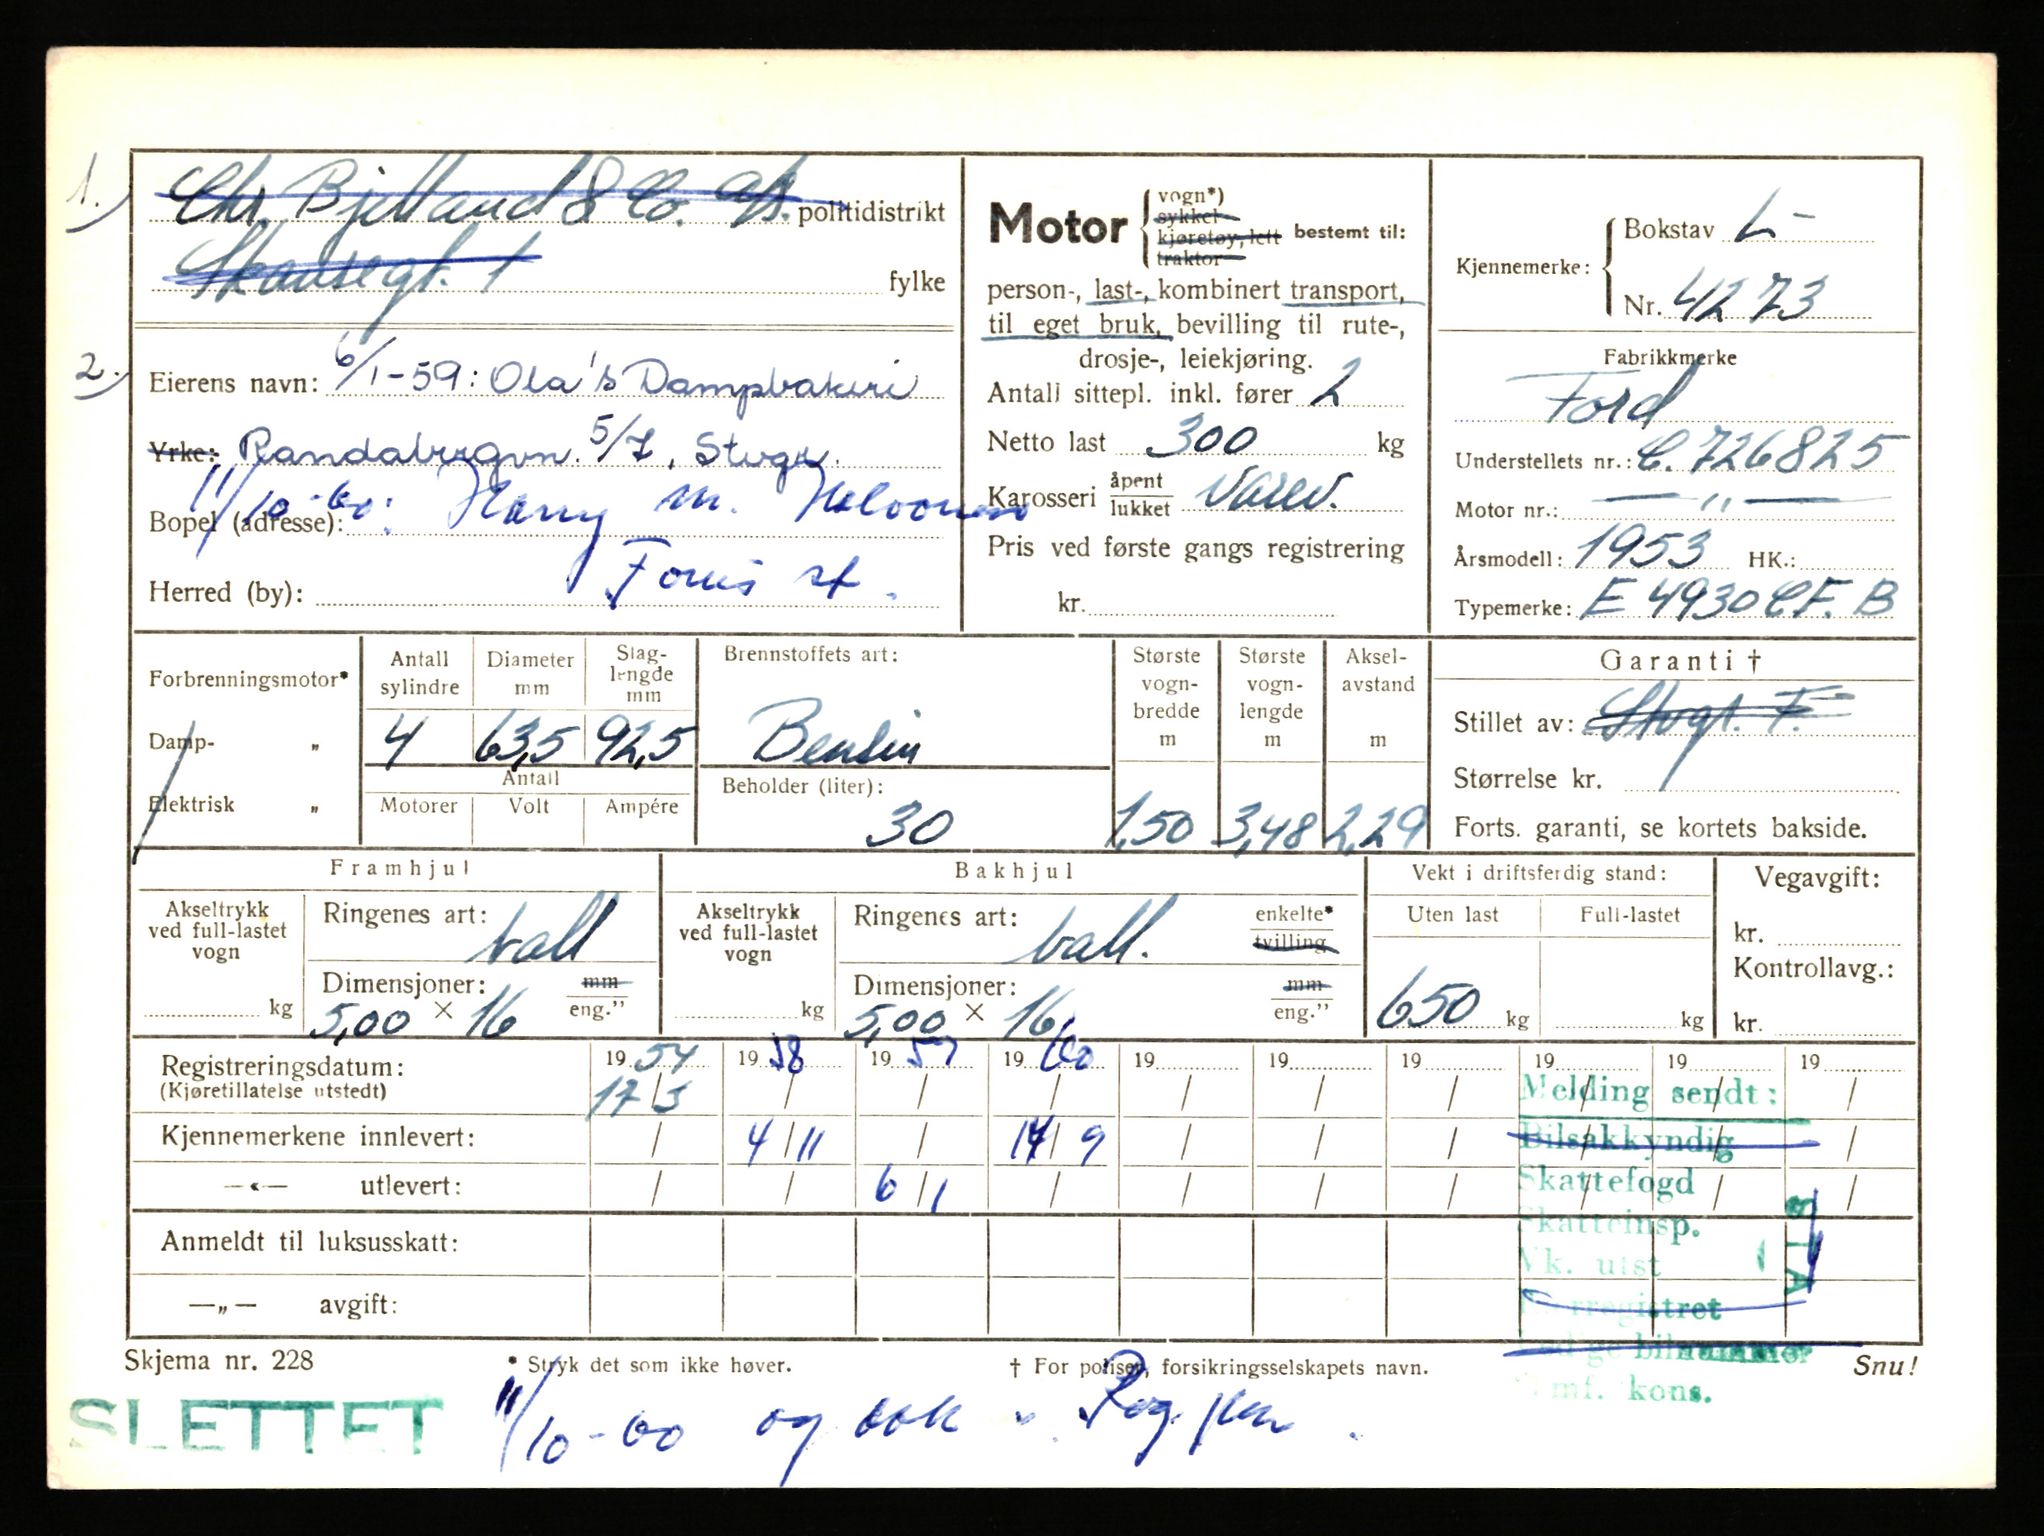 1.) Chr. Bjelland & Co. A/S. politidistrikt
Skansegt. 1 fylke
2.) Eierens navn: 6/1-59: Ola's Dampbakeri
Yrke: Randabergvn. 5/7, Stvgr.
Bopel (adresse): 11/10-60: Harry M.
Herred (by): Forus st.
Motor { vogn*) sykkel kjøretøy, lett traktor bestemt til:
person-, last-, kombinert transport,
til eget bruk, bevilling til rute-,
drosje-, leiekjøring.
Antall sittepl. inkl. fører 2
Netto last 300 kg
Karosseri åpent lukket Varev.
Pris ved første gangs registrering
kr.
Kjennemerke: { Bokstav L-
Nr. 41273
Fabrikkmerke
Ford
Understellets nr.: C. 726825
Motor nr.: — " —
Årsmodell: 1953 HK.:
Typemerke: E 4930 CF. B
Forbrenningsmotor*
Damp- „
Elektrisk „
Antall sylindre
4
Diameter mm
63,5
Slag-lengde mm
92,5
Antall
Motorer Volt Ampére
Brennstoffets art:
Bensin
Beholder (liter):
30
Største vogn-bredde m
1,50
Største vogn-lengde m
3,48
Aksel-avstand m
2,29
Garanti †
Stillet av: Stvgr. F.
Størrelse kr.
Forts. garanti, se kortets bakside.
Framhjul
Akseltrykk ved full-lastet vogn
kg
Ringenes art: ball
Dimensjoner: mm
5,00 × 16 eng.”
Bakhjul
Akseltrykk ved full-lastet vogn
kg
Ringenes art: ball. enkelte* tvilling
Dimensjoner: mm
5,00 × 16 eng.”
Vekt i driftsferdig stand:
Uten last Full-lastet
650 kg kg
Vegavgift:
kr.
Kontrollavg.:
kr.
Registreringsdatum: 19 54 19 58 19 59 19 60 19 19 19 19 19 19
(Kjøretillatelse utstedt) 17/3 / / / / / / / / /
Kjennemerkene innlevert: / 4/11 / 14/9 / / / / / /
—«— utlevert: / / 6/1 / / / / / / /
Anmeldt til luksusskatt:
—„— avgift:
Melding sendt:
Bilsakkyndig
Skattefogd
Skatteinsp.
Vk. utst
rregistret
ge bilnummer
mf. kons.
Skjema nr. 228 * Stryk det som ikke høver. † For poliser, forsikringsselskapets navn. Snu!
SLETTET 11/10-60 og